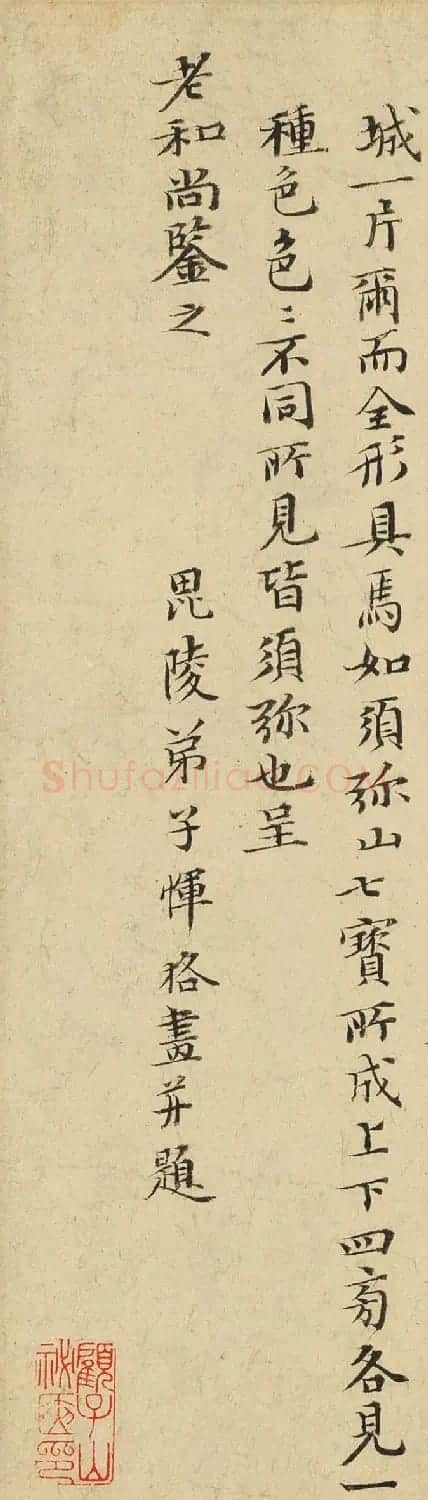 城一片爾而全形具焉如須弥山七寳所成上下四旁各見一
種色色〻不同所見皆須弥也呈
老和尚鑒之
毘陵弟子惲格畫并題
顧子山
祕印
Shufaziliao.COM